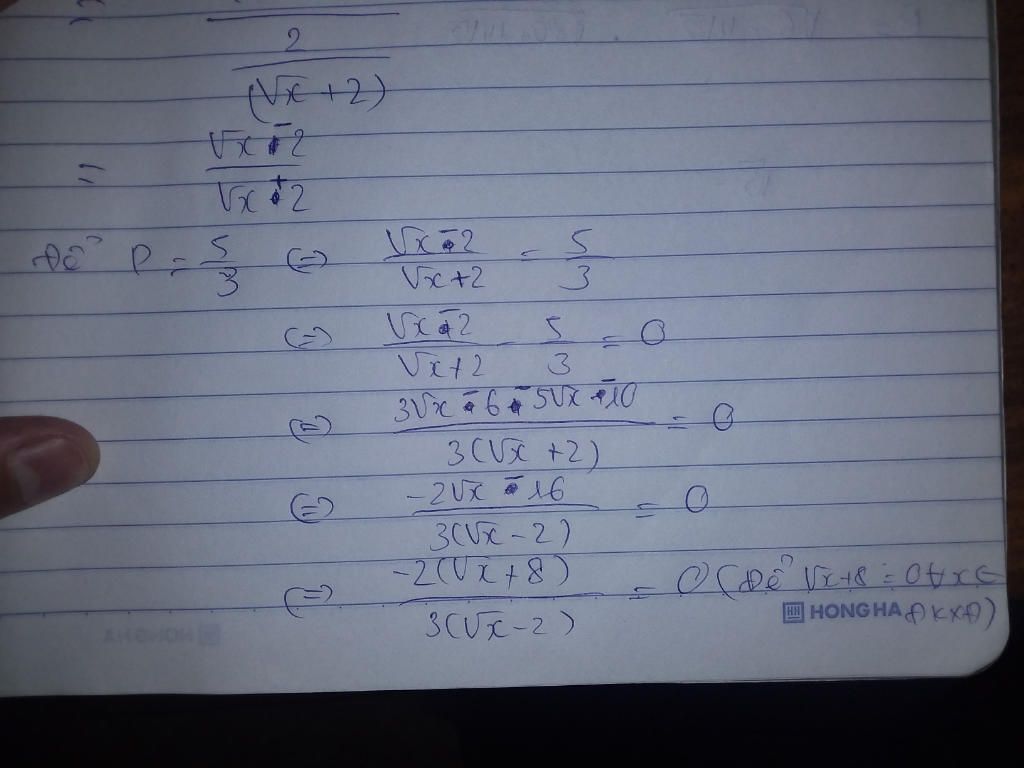 2
(√x + 2)
= (√x - 2)/(√x + 2)
Để P = 5/3 (=) (√x - 2)/(√x + 2) = 5/3
(=) (√x - 2)/(√x + 2) - 5/3 = 0
(=) (3√x - 6 - 5√x - 10)/(3(√x + 2)) = 0
(=) (-2√x - 16)/(3(√x - 2)) = 0
(=) (-2(√x + 8))/(3(√x - 2)) = 0 (Để √x + 8 = 0 ∀ x ∈
HONG HA ĐKXĐ)